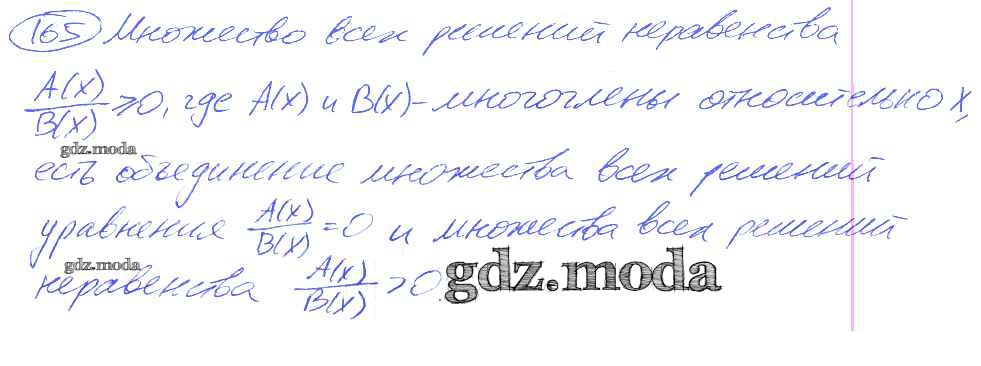 165 Множество всех решений неравенства
A(x)/B(x) ≥ 0, где A(x) и B(x) - многочлены относительно x,
gdz.moda
есть объединение множества всех решений
уравнения A(x)/B(x) = 0 и множества всех решений
gdz.moda
неравенства A(x)/B(x) > 0.
gdz.moda